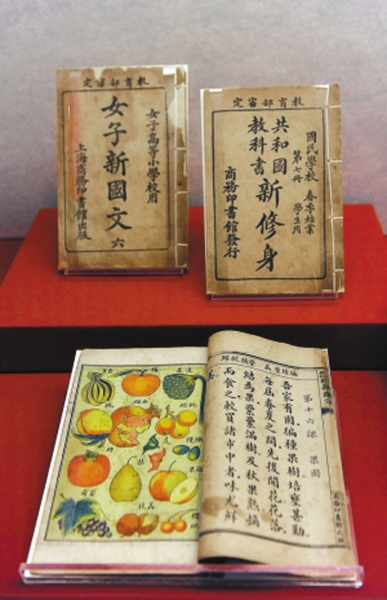 教育部審定
女子高等小學校用
女子新國文 六
上海商務印書館出版
教育部審定
國民學校 春季始業
第七冊 學生用
共和國
教科書
新修身
商務印書館發行
第十六課 果園
吾家有園。徧種果樹。培壅甚勤。
每屆春夏之間。先後開花。花落
結為果。纍纍滿樹。及秋果熟。摘
而食之。較買諸市中者。味尤鮮
美
葡萄